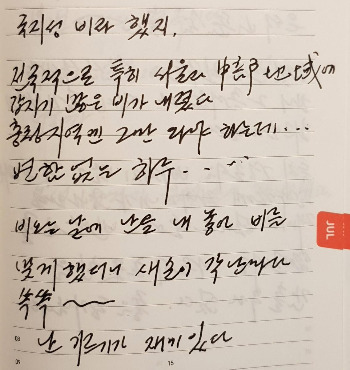 국지성 비라 했지.
전국적으로 특히 서울과 中部 地域에
갑자기 많은 비가 내렸다
충청지역엔 그만 와야 하는데...
변함없는 하루...
비오는 날에 난을 내 놓아 비를
맞게 했더니 새순이 각 난마다
쑥쑥~
난 기르기가 재미 있다
JUL